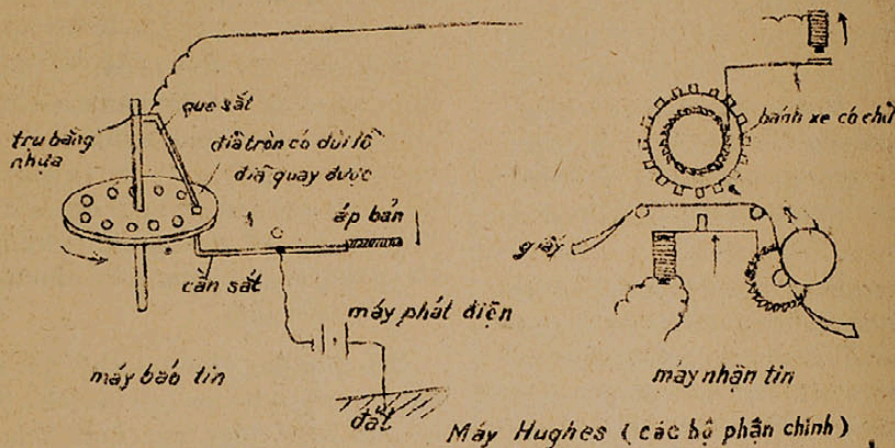 que sắt
trụ bằng
nhựa
đĩa tròn có dùi lỗ
đĩa quay được
áp bản
cần sắt
máy phát điện
đất
máy báo tin
bánh xe có chữ
giấy
máy nhận tin
Máy Hughes ( các bộ phận chính )